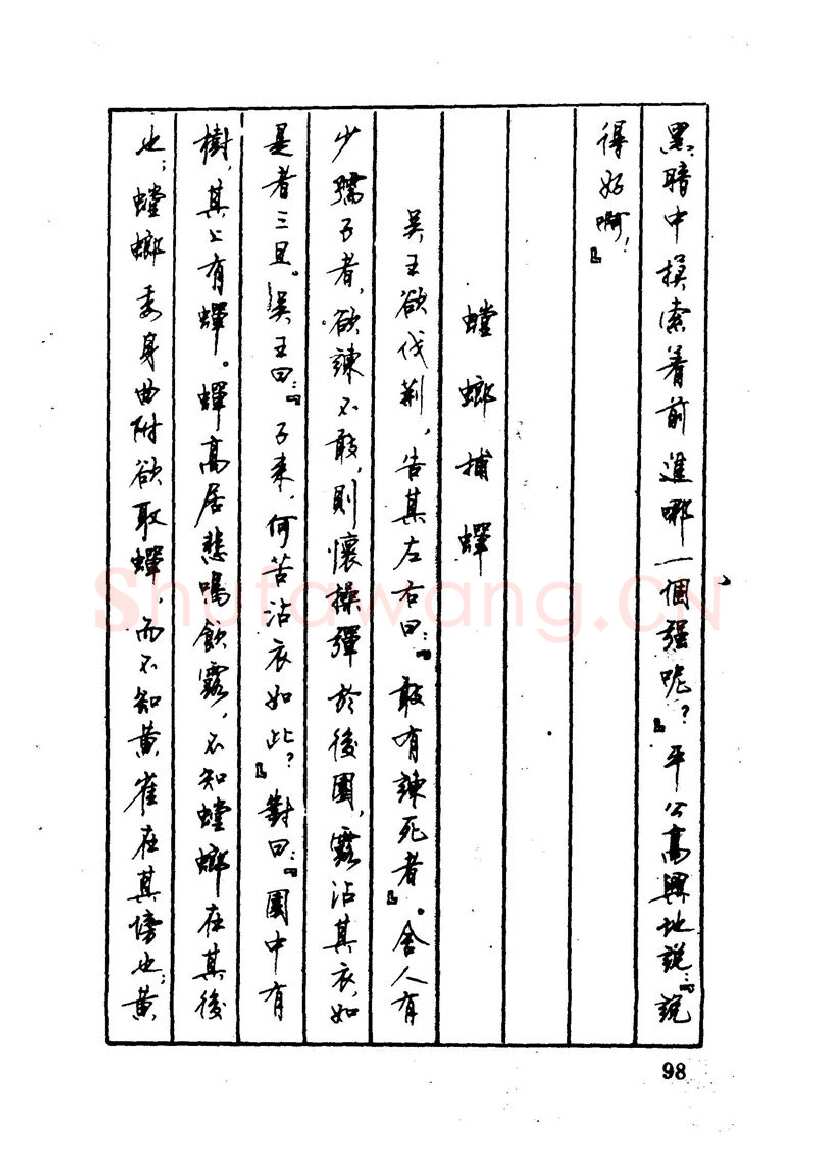 黑暗中摸索着前進哪一個强呢？』平公高興地説：『説
得好啊！』
螳螂捕蟬
吴王欲伐荆，告其左右曰：『敢有諫死者』。舍人有
少孺子者，欲諫不敢，則懷操彈於後園，露沾其衣，如
是者三旦。吴王曰：『子來，何苦沾衣如此？』對曰：『園中有
樹，其上有蟬。蟬高居悲鳴飲露，不知螳螂在其後
也；螳螂委身曲附欲取蟬，而不知黄雀在其傍也；黄
98
Shufawang.CN